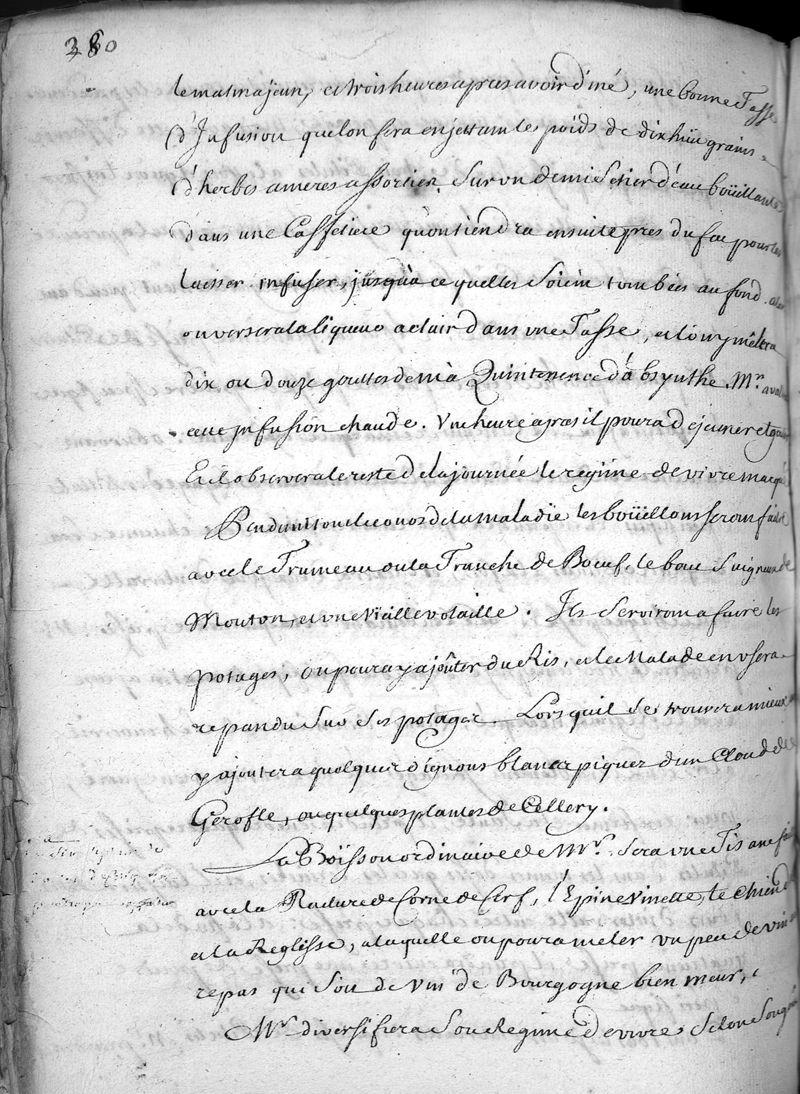 380
le matin a jeun, et trois heures apres avoir diné, une bonne Tasse
d'Infusion que lon fera en jettant le poids de dix huit grains
d'herbes ameres assorties, sur un demi Setier d'eau boüillante
dans une Caffetiere qu'on tiendra ensuite pres du feu pour les
laisser infuser, jusqu'a ce quelles Soient tombées au fond.
on versera la liqueur a clair dans une Tasse, et l'on y mêttra
dix ou douze gouttes de ma Quintenence d'absynthe. Mr. avalera
cette infusion chaude. Une heure apres il poura dejeuner
Et il observera le reste de la journée le regime de vivre marqué
Pendant tout le cours de la maladie les boüillons seront faits
avec le Trumeau ou la Tranche de Boeuf, le bout Saigneux de
Mouton, et une vieille volaille. Ils serviront a faire les
potages, on poura y ajoûter du Ris, et le Malade en usera
repandu sur ses potages. Lors quil se trouvera mieux on
y ajoutera quelques oignons blancs piquez d'un Cloud de
Gerofle, ou quelques plantes de Cellery.
La Boisson ordinaire de Mr. sera une Tisanne faite
avec la Rapure de Corne de Cerf, l'Epine Vinette, le chiendent
et la Reglisse, a laquelle on poura meler un peu de vin
repas qui soit de vin de Bourgogne bien meur,
Mr. diversifiera son Regime de vivre selon son gout